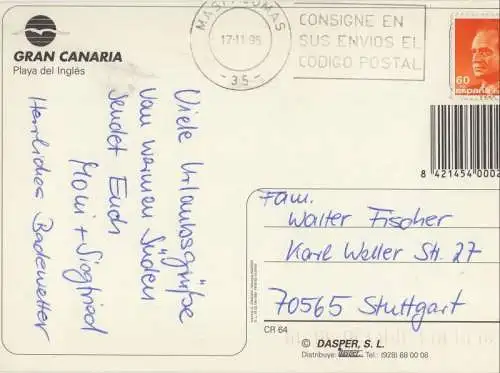 GRAN CANARIA
Playa del Inglés
MASPALOMAS
17-11-95
-35-
CONSIGNE EN
SUS ENVIOS EL
CODIGO POSTAL
60
ESPAÑA
8 421454 0002
Viele Urlaubsgrüße
vom warmen Süden
sendet Euch
Moni + Siegfried
Herrliches Badewetter
Fam.
Walter Fischer
Karl Weller Str. 27
70565 Stuttgart
CR 64
© DASPER, S. L.
Distribuye: Tel.: (928) 68 00 08